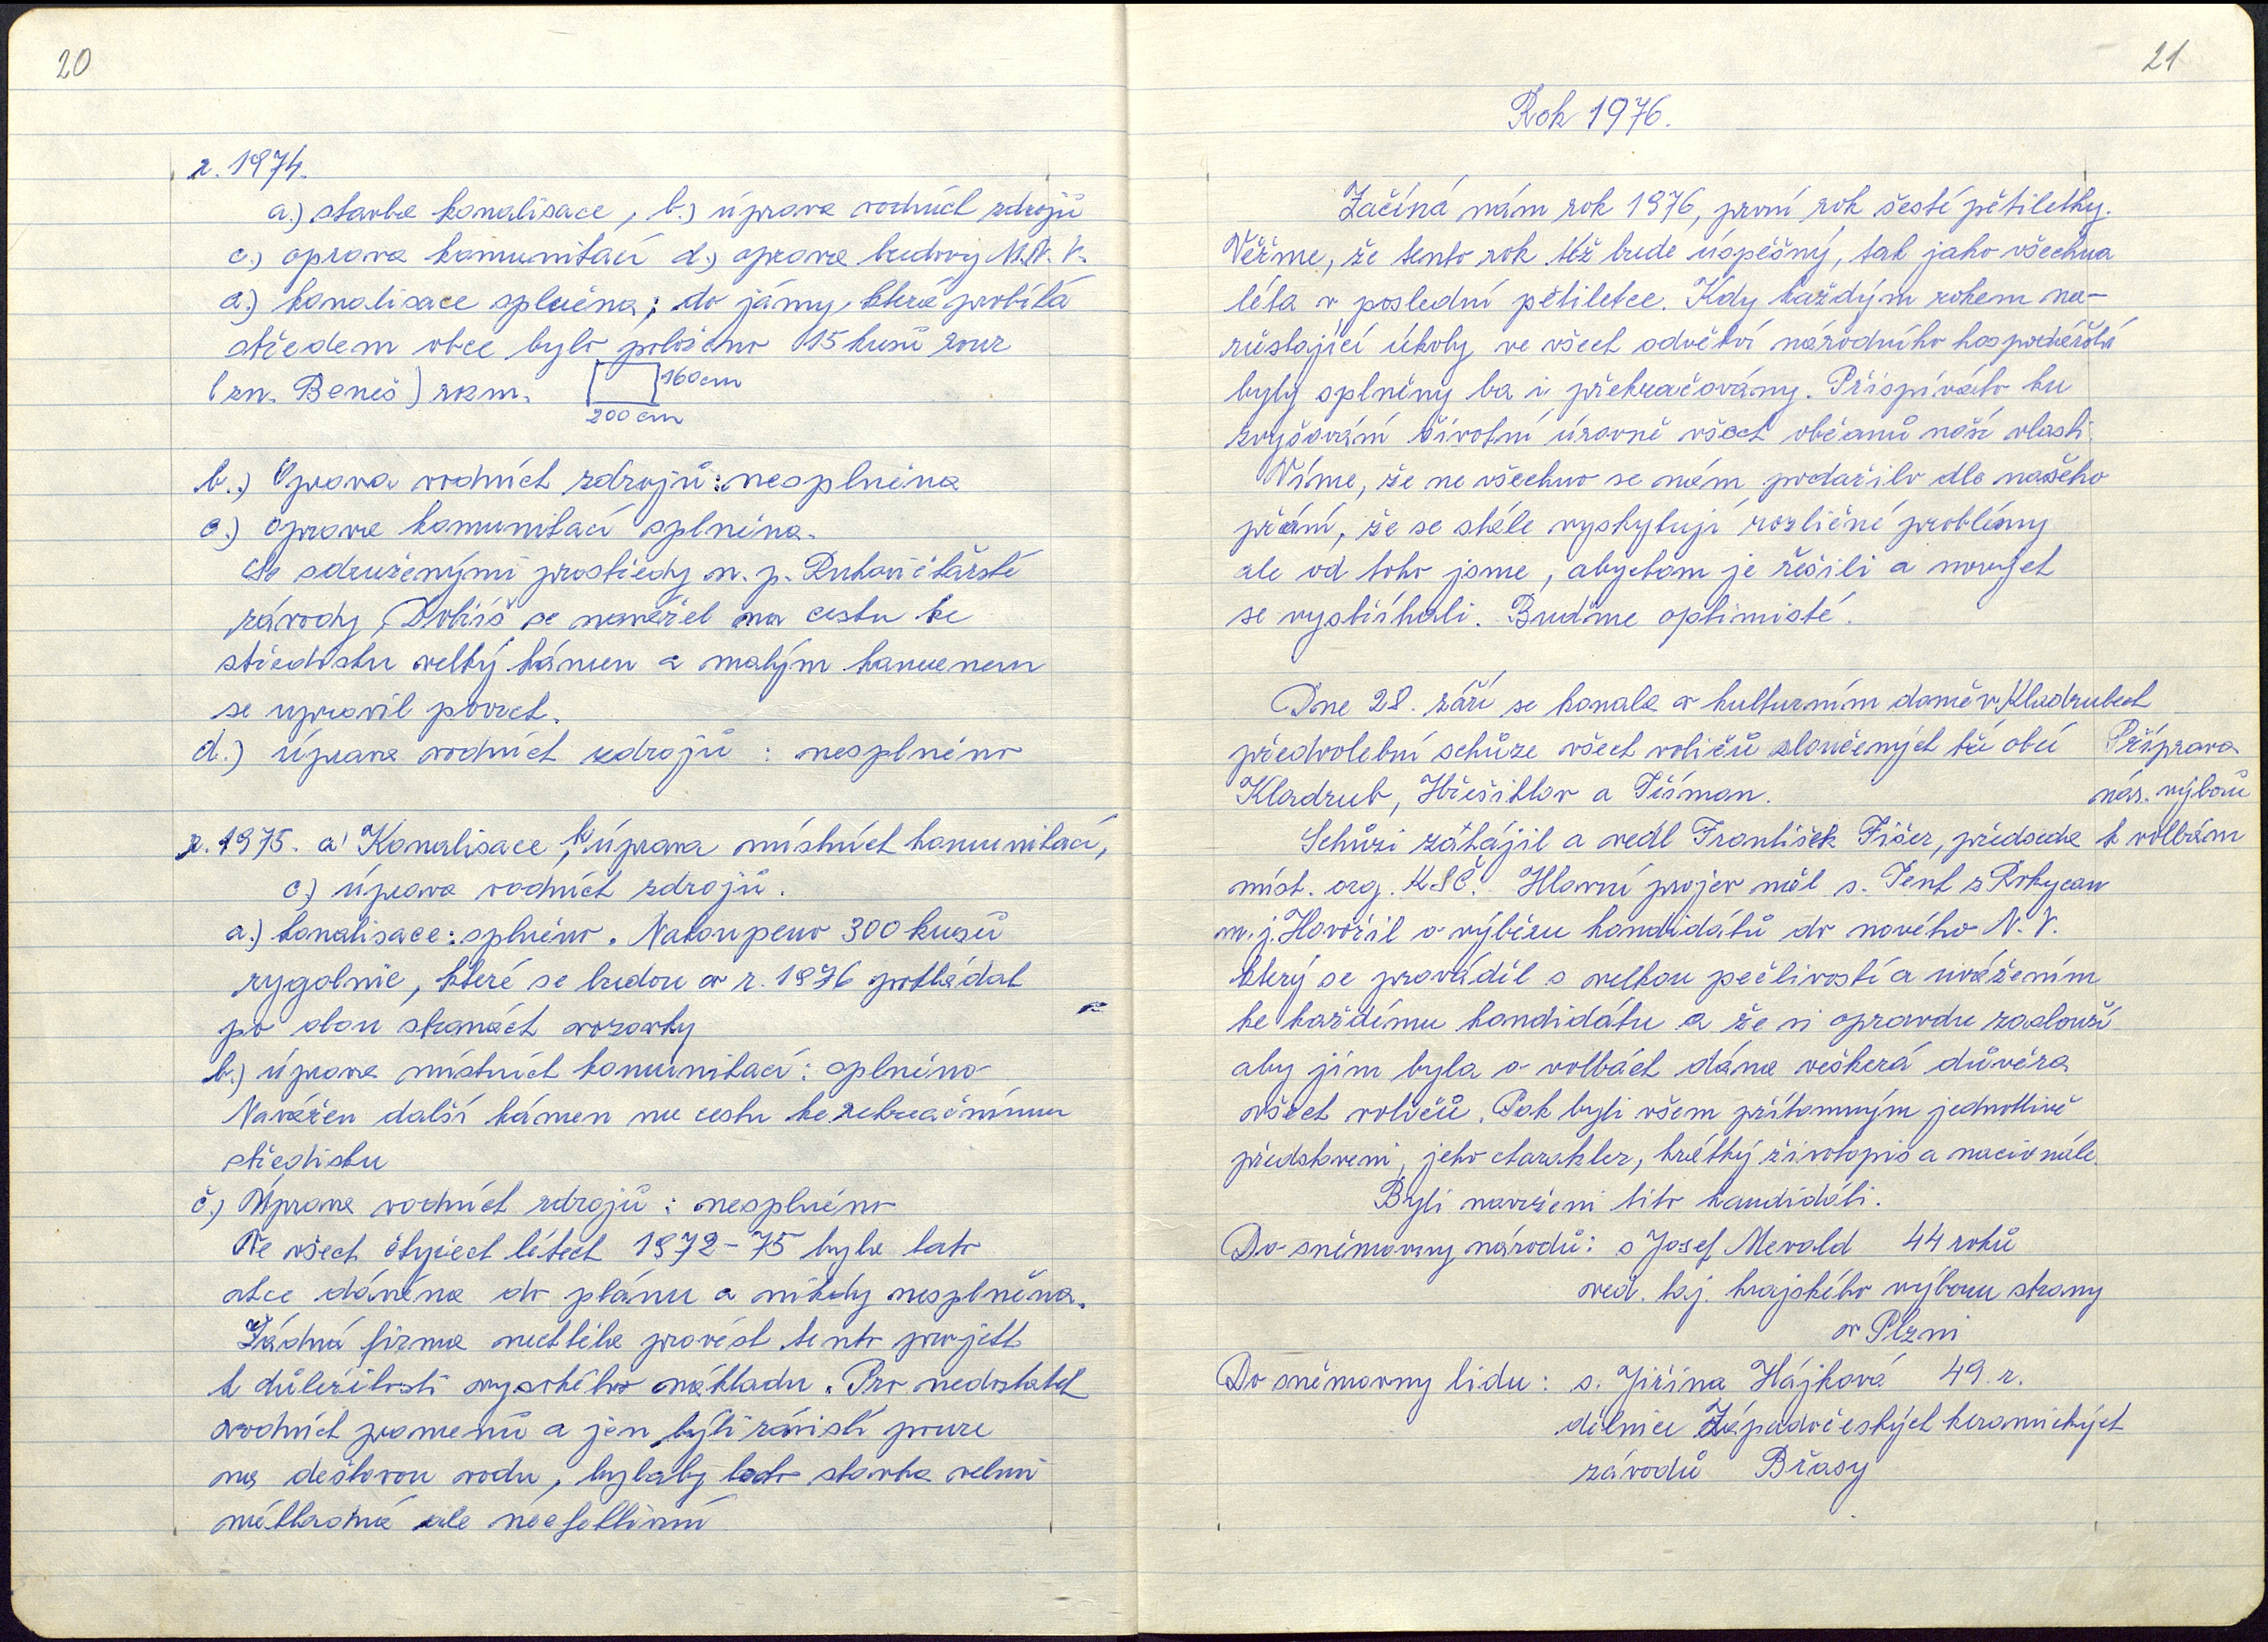 20
r. 1974.
a.) stavba kanalisace, b.) úprava vodních zdrojů
c.) oprava komunikací d.) oprava budovy M.N.V.
a.) kanalisace splněna; do jámy, která probíhá
středem obce bylo položeno 15 kusů rour
(zn. Beneš) rozm. 160 cm
200 cm
b.) Oprava vodních zdrojů: nesplněna
c.) oprava komunikací splněna.
Se sdruženými prostředky n. p. Rukavičkářské
závody, Dobříš se navážel na cestu ke
středisku velký kámen a malým kamenem
se upravil povrch.
d.) úprava vodních zdrojů: nesplněno
r. 1975. a) Kanalisace, b) úprava místních komunikací,
c.) úprava vodních zdrojů.
a.) kanalisace: splněno. Nakoupeno 300 kusů
rygolnic, které se budou v r. 1976 pokládat
po obou stranách vozovky
b.) úprava místních komunikací: splněno
Navážen další kámen na cestu ke rekreačnímu
středisku
č.) Úprava vodních zdrojů: nesplněno
Ve všech čtyřech létech 1972-75 byla tato
akce dáněna do plánu a nikdy nesplněna.
Žádná firma nechtěla provést tento projekt
k důležitosti vysokého nákladu. Pro nedostatek
vodních pramenů a jen býti závislí pouze
na dešťovou vodu, bylaby tato stavba velmi
nákladná ale neefektivní
21
Rok 1976.
Začíná nám rok 1976, první rok šesté pětiletky.
Věřme, že tento rok též bude úspěšný, tak jako všechna
léta v poslední pětiletce. Kdy každým rokem na-
růstající úkoly ve všech odvětví národního hospodářství
byly splněny ba i překračovány. Přispívalo ku
zvyšování životní úrovně všech občanů naší vlasti.
Víme, že ne všechno se nám podařilo dle našeho
přání, že se stále vyskytují rozličné problémy
ale od toho jsme, abychom je řešili a nových
se vystříhali. Buďme optimisté.
Dne 28. září se konala v kulturním domě v Kladrubech
předvolební schůze všech voličů sloučených tří obcí
Kladrub, Hřešihlav a Těšman.
Příprava
nár. výborů
k volbám
Schůzi zahájil a vedl František Fišer, předseda
míst. org. KSČ. Hlavní projev měl s. Tent z Rokycan
m. j. Hovořil o výběru kandidátů do nového N. V.
který se prováděl s velkou pečlivostí a uvážením
ke každému kandidátu a že si opravdu zaslouží
aby jim byla v volbách dána veškerá důvěra
všech voličů. Pak byli všem přítomným jednotlivě
představeni, jeho charakter, krátký životopis a nacionále.
Byli navrženi tito kandidáti.
Do sněmovny národů: s Josef Mevald 44 roků
ved. taj. krajského výboru strany
v Plzni
Do sněmovny lidu: s. Jiřina Hájková 49. r.
dělnice Západočeských keramických
závodů Břasy